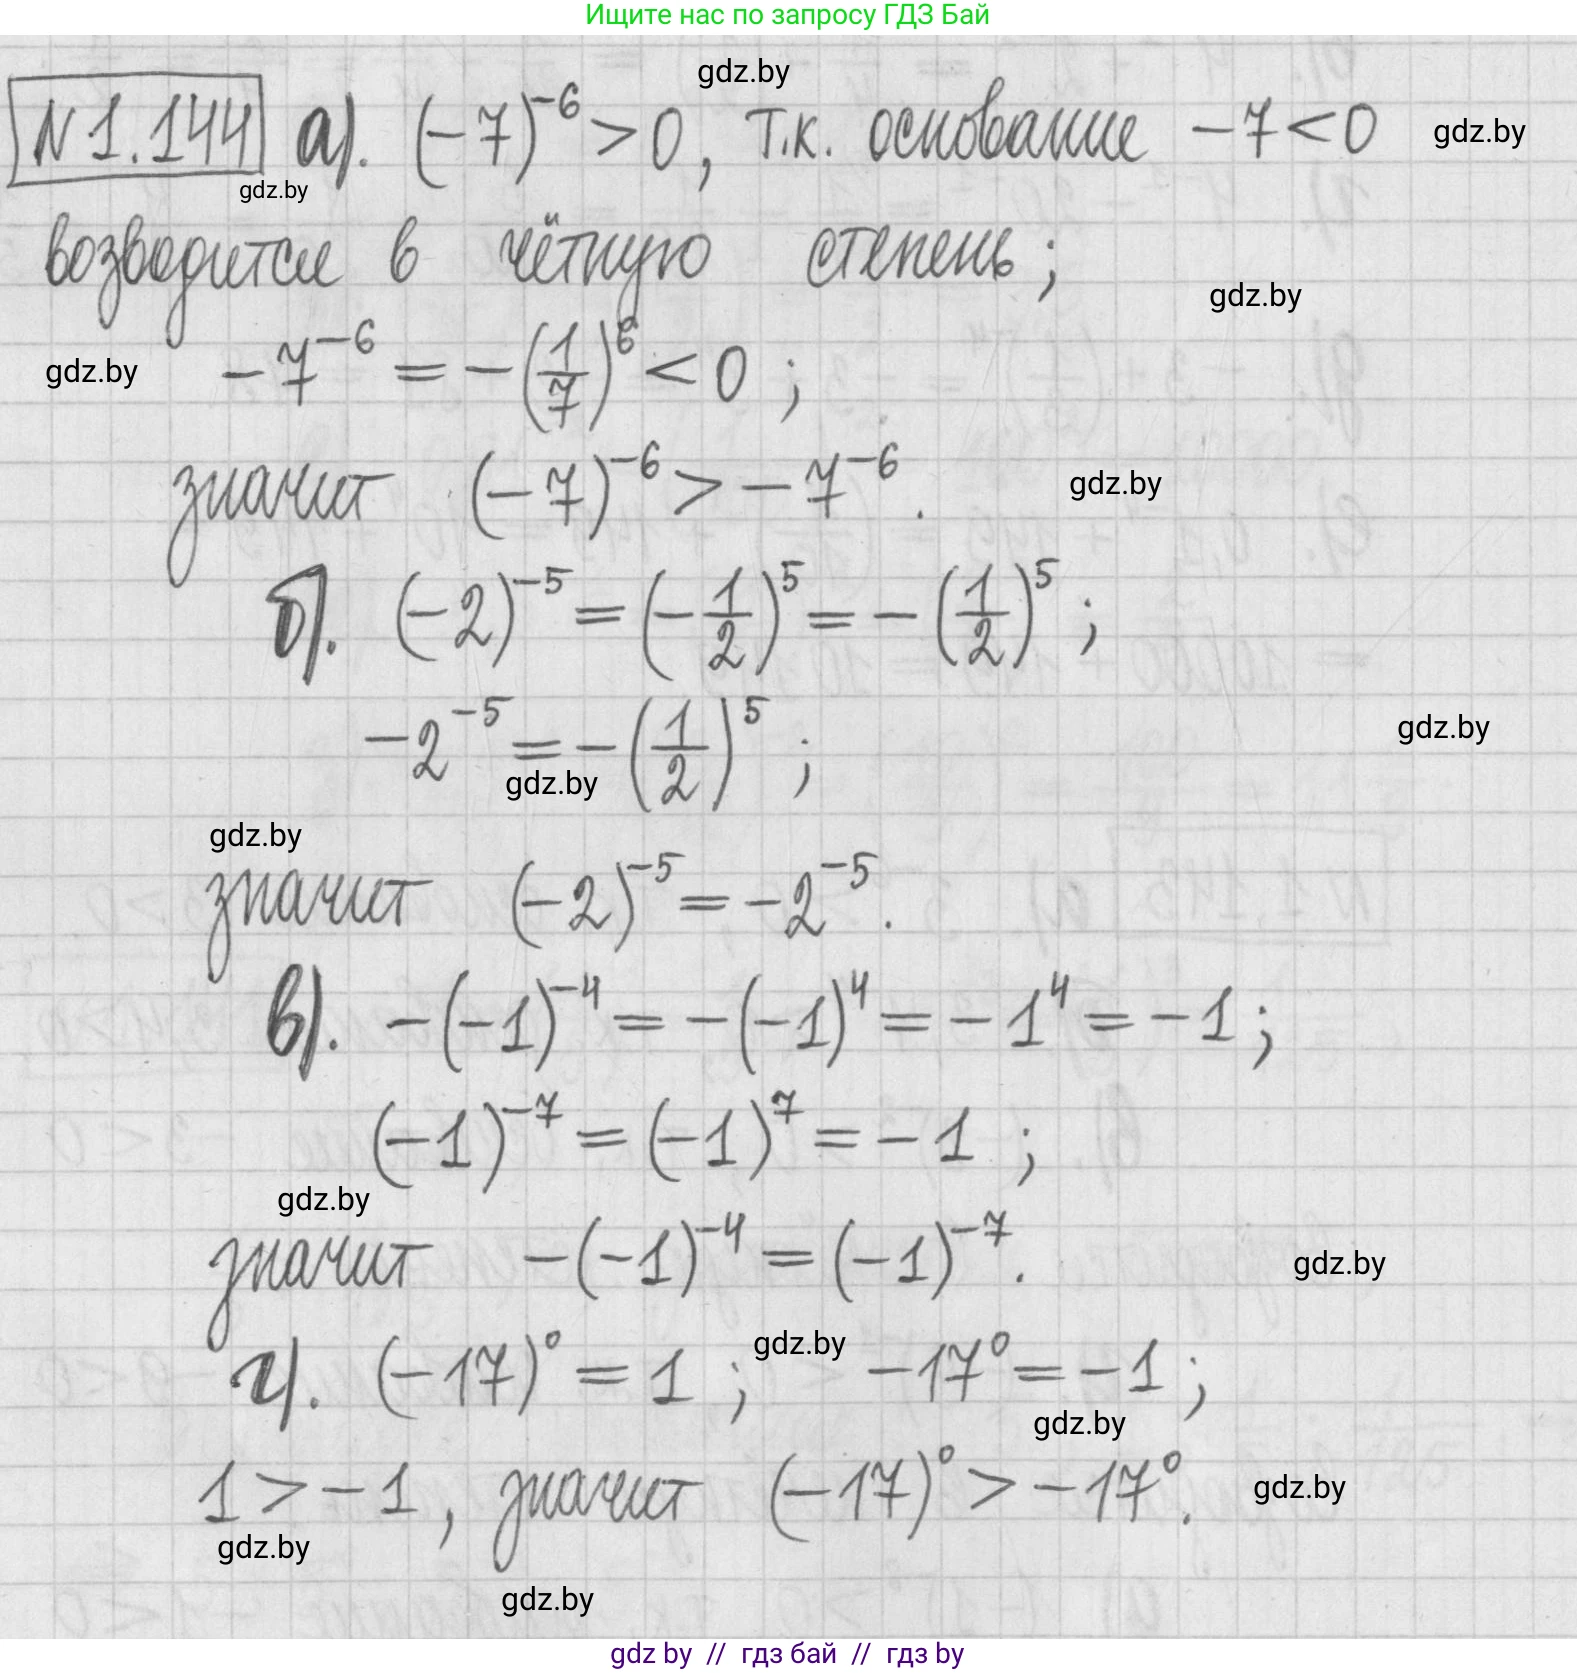 Ищите нас по запросу ГДЗ Бай
gdz.by
N 1.144 а). (-7)^{-6} > 0, т.к. основание -7 < 0 gdz.by
gdz.by
возводится в чётную степень;
gdz.by
gdz.by -7^{-6} = -(1/7)^6 < 0 ;
значит (-7)^{-6} > -7^{-6}. gdz.by
б). (-2)^{-5} = (-1/2)^5 = -(1/2)^5 ;
-2^{-5} = -(1/2)^5 ; gdz.by
gdz.by
gdz.by
значит (-2)^{-5} = -2^{-5}.
в). -(-1)^{-4} = -(-1)^4 = -1^4 = -1 ;
(-1)^{-7} = (-1)^7 = -1 ;
gdz.by
значит -(-1)^{-4} = (-1)^{-7}. gdz.by
г). (-17)^0 = 1 ; gdz.by -17^0 = -1 ;
gdz.by
1 > -1 , значит (-17)^0 > -17^0. gdz.by
gdz.by
gdz.by
gdz by // гдз бай // гдз by